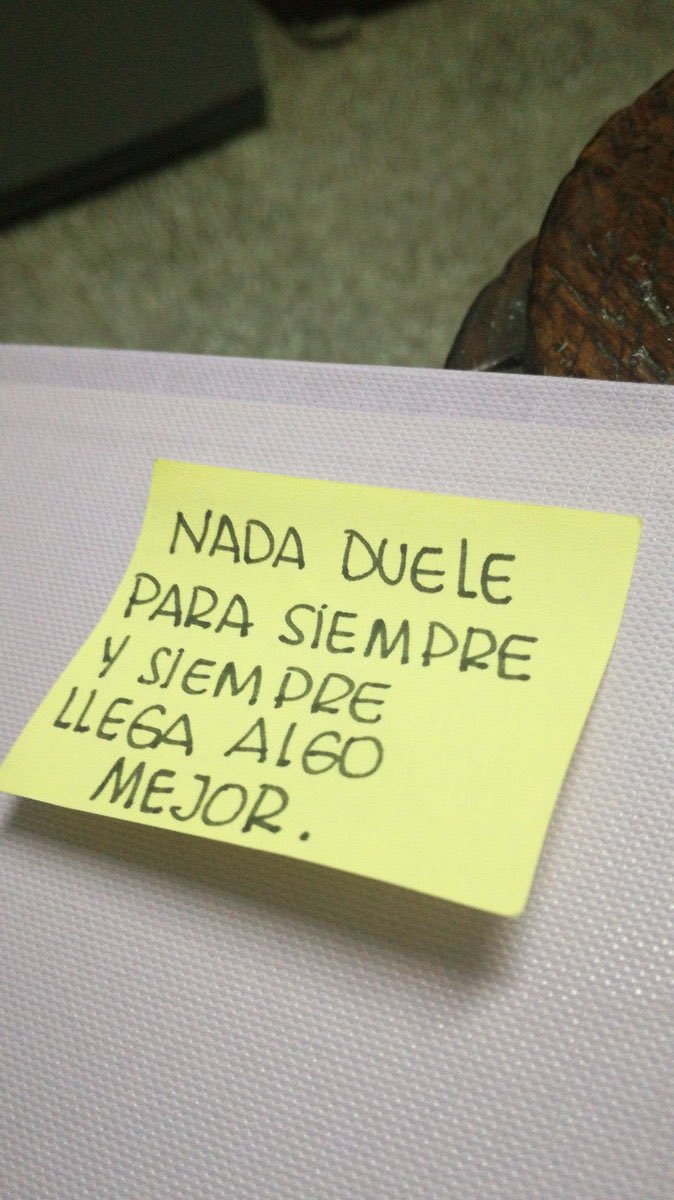 NADA DUELE
PARA SIEMPRE
Y SIEMPRE
LLEGA ALGO
MEJOR.